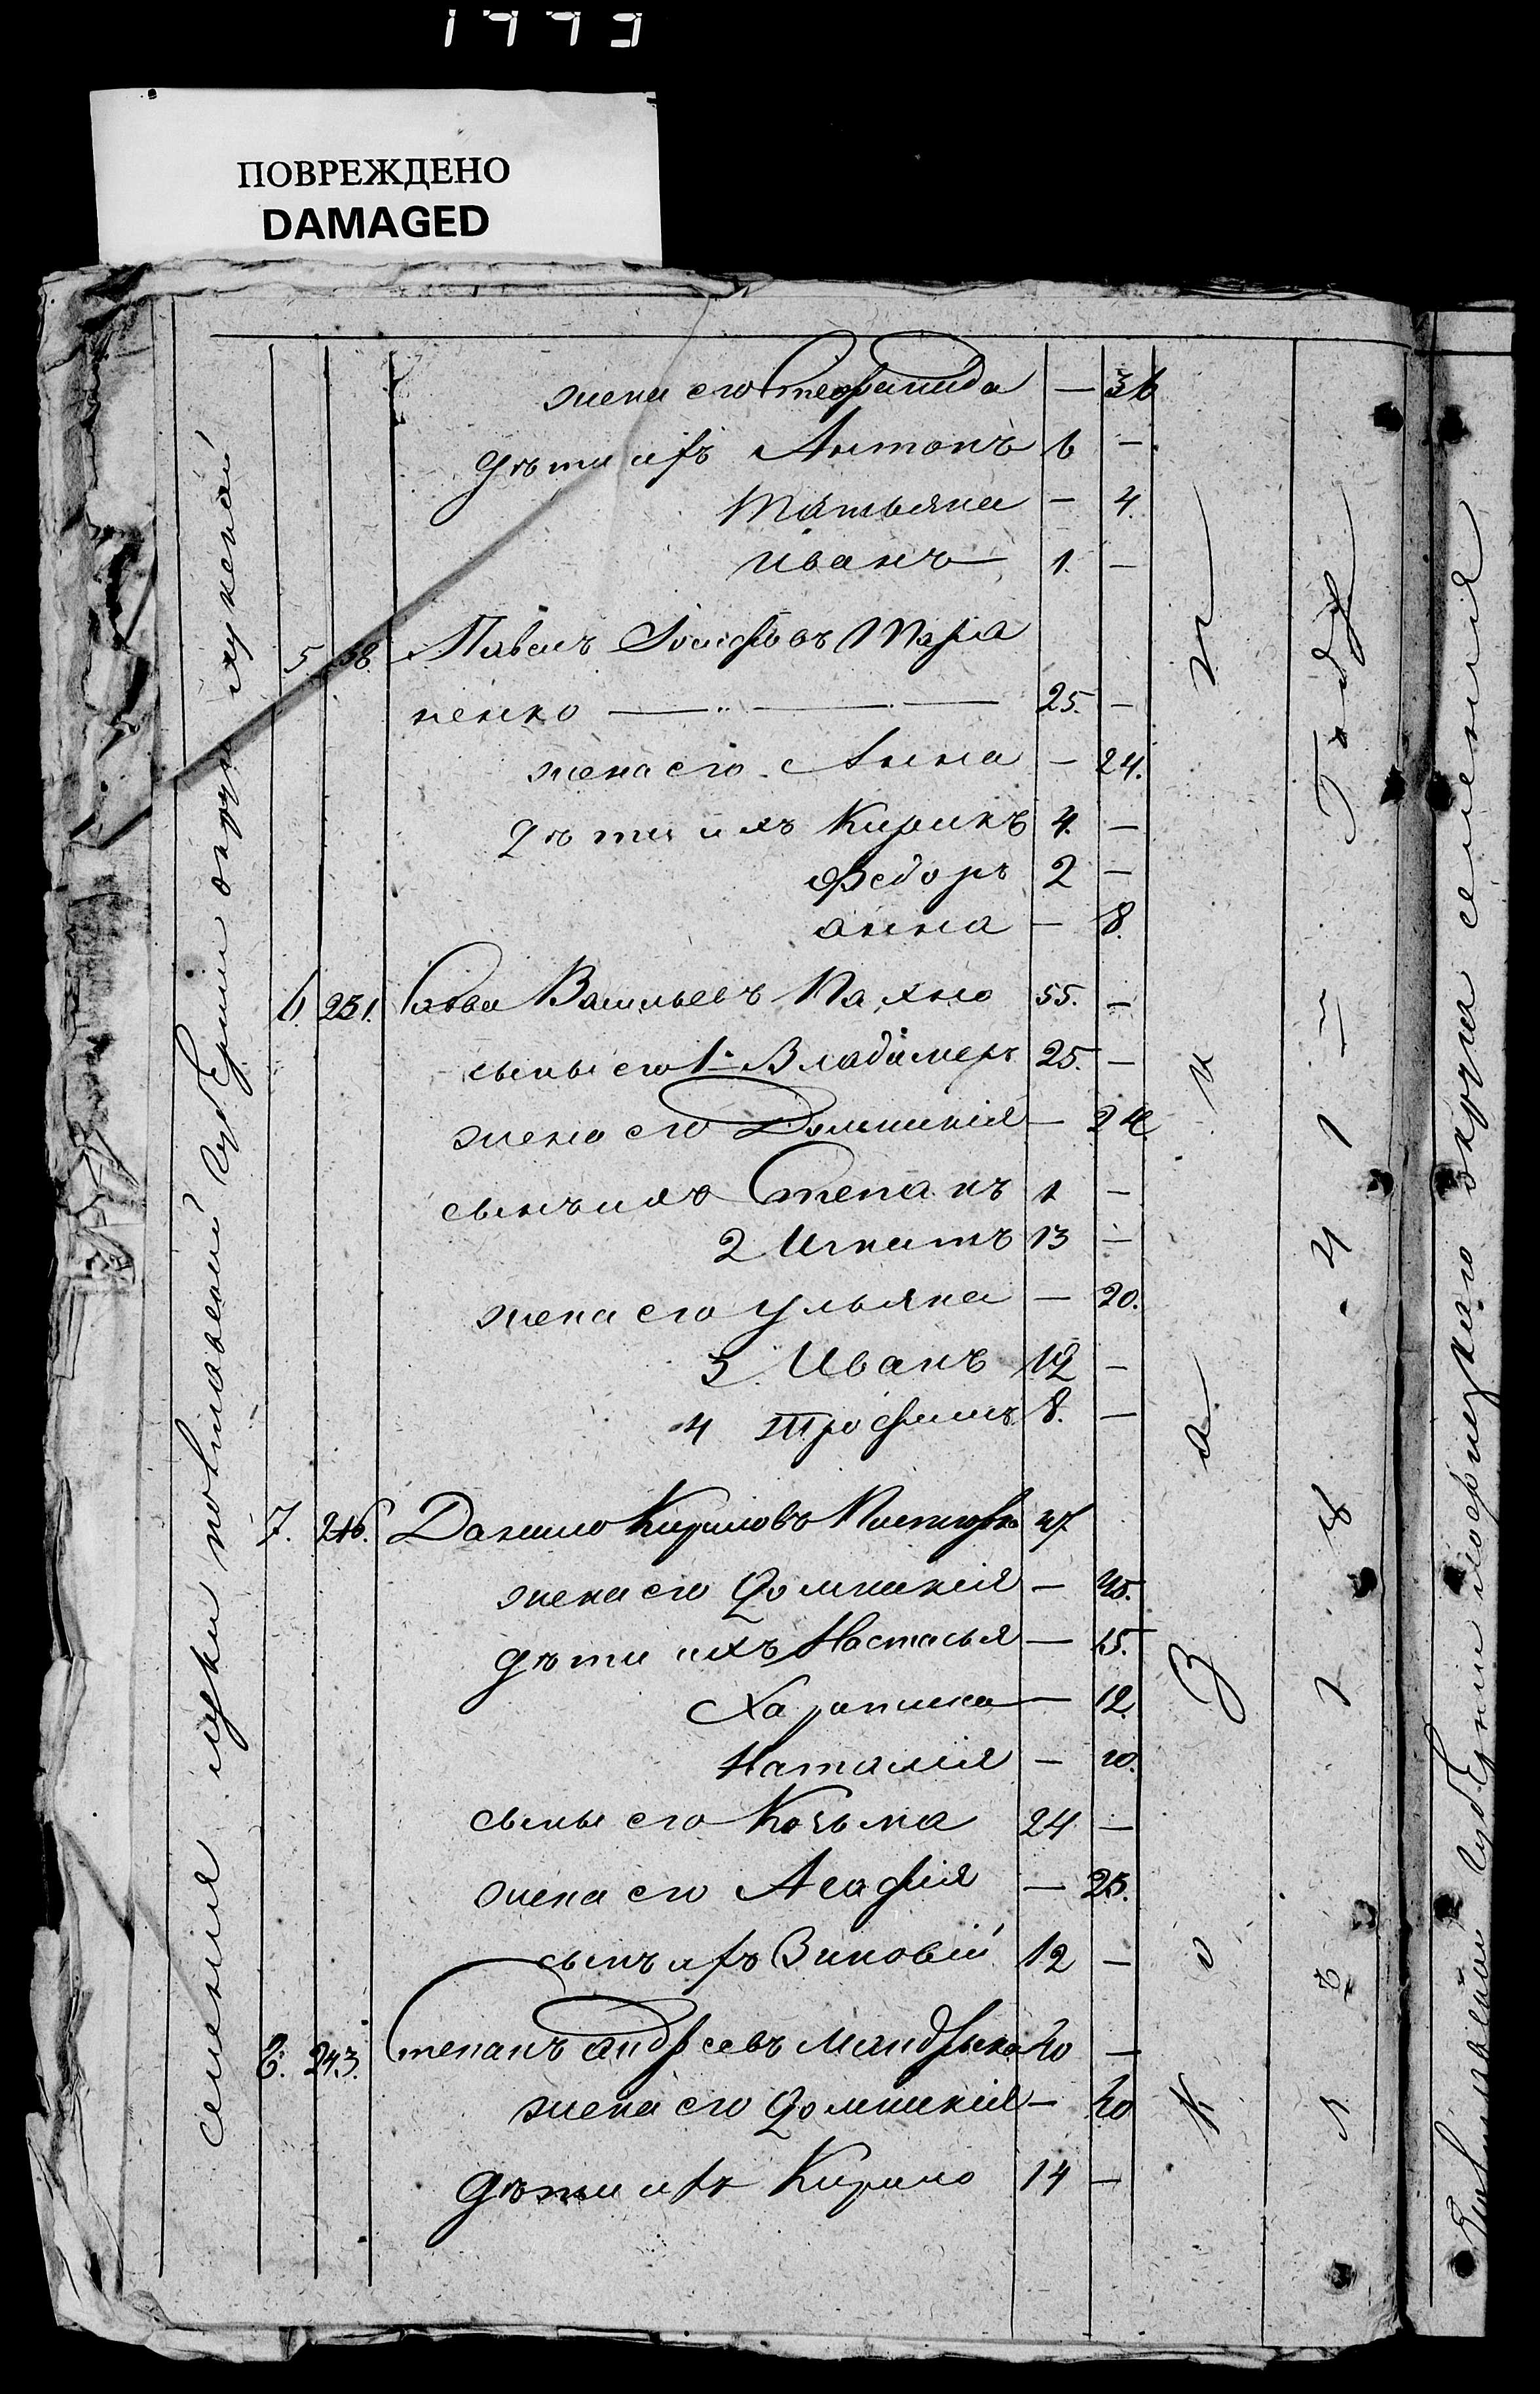 ПОВРЕЖДЕНО
DAMAGED
жена его Стефанида — 36
дѣти ихъ Антонъ 6 —
Татьяна — 4.
Иванъ 1. —
5 58 Павелъ Іосифовъ Тара
ненко — 25. —
жена его Анна — 24.
дѣти ихъ Кирикъ 4. —
Федоръ 2 —
анна — 8.
6. 231. Савва Васильевъ Махно 55. —
сыны его 1. Владимеръ 25. —
жена его Домникія — 24.
сынъ ихъ Степанъ 1 —
2 Игнатъ 13 —
жена его ульяна — 20.
3. Иванъ 12 —
4 Трофимъ 8. —
7. 216. Данило Кириловъ 47
жена его Домникія — 45.
дѣти ихъ Настасья — 15.
Харитина — 12.
Наталія — 10.
сыны его Козьма 24 —
жена его Агафія — 25.
сынъ ихъ Зиновій 12 —
8. 243. Степанъ андреевъ Мандрыка 40 —
жена его Домникія — 40
дѣти ихъ Кирило 14 —
селенія луки полтавской губерніи округи
к о з а к и
1 8 4 1 Году
Полтавской губерніи округи селенія